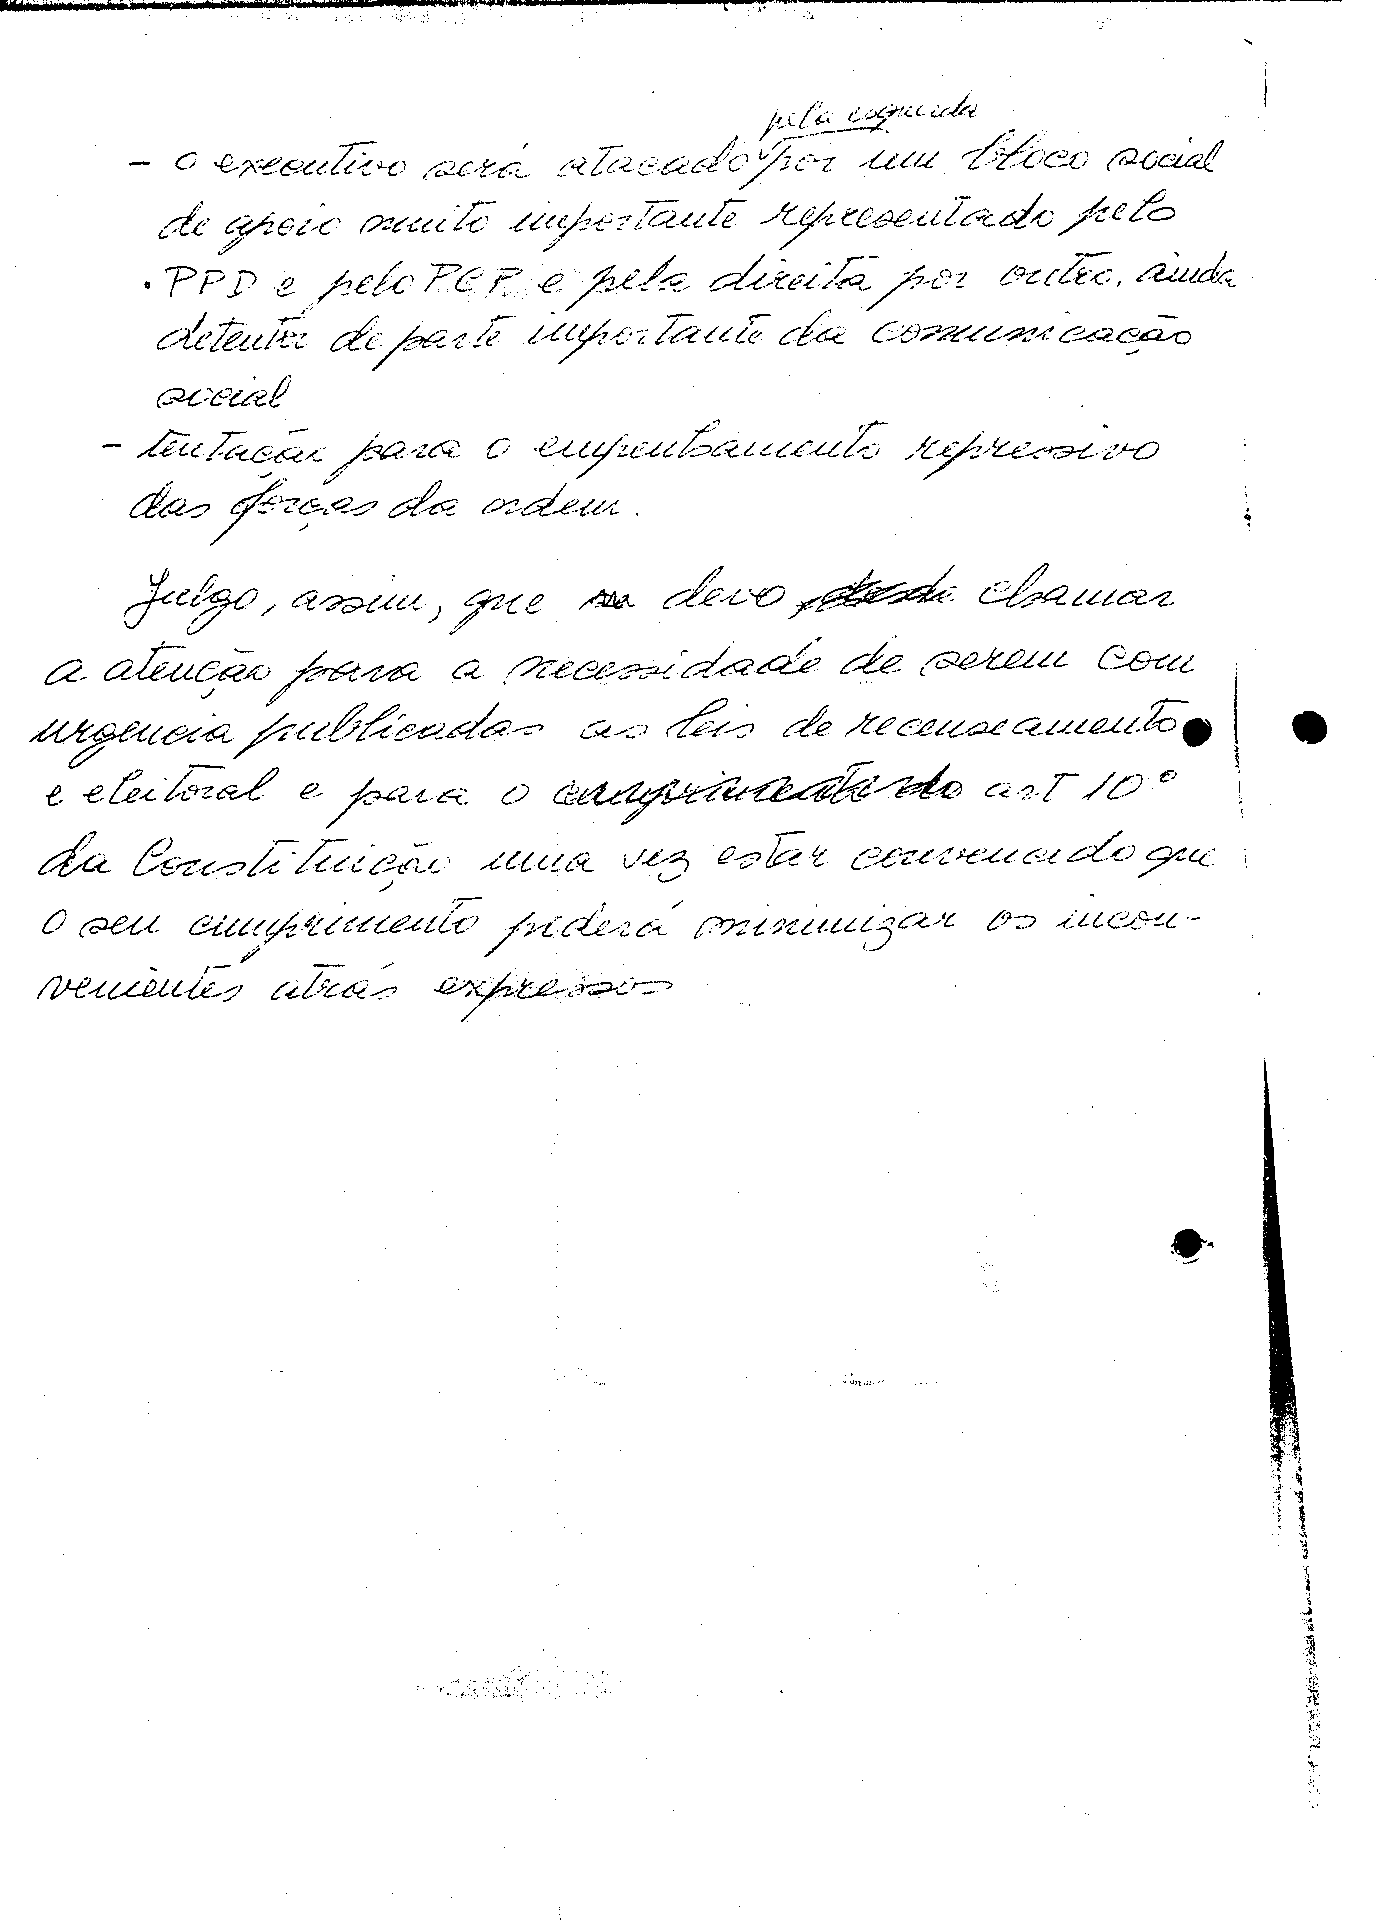 pela esquerda
- o executivo será atacado por um bloco social
de apoio muito importante representado pelo
PPD e pelo PCP e pela direita por outro, ainda
detentor de parte importante da comunicação
social
- tentação para o empenhamento repressivo
das forças da ordem.
Julgo, assim, que devo chamar
a atenção para a necessidade de serem com
urgencia publicadas as leis de recenseamento
e eleitoral e para o art 10º
da Constituição uma vez estar convencido que
o seu cumprimento poderá minimizar os incon-
venientes atrás expressos